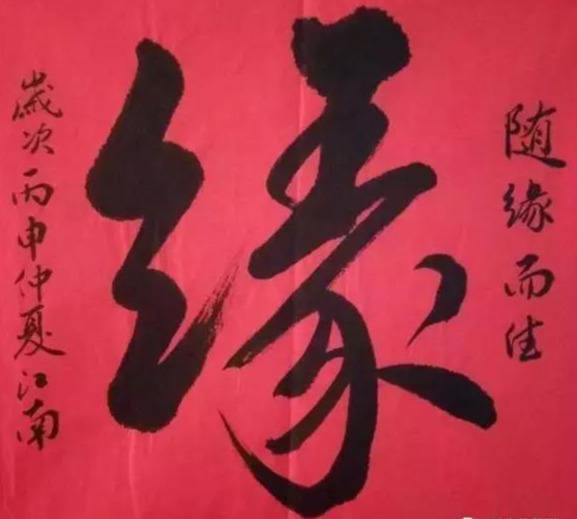 随缘而佳
缘
岁次丙申仲夏江南